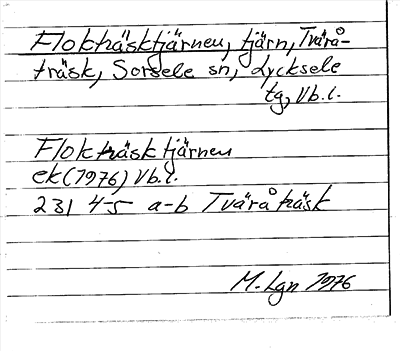 Flokträsktjärnen, tjärn, Tvärå-
träsk, Sorsele sn, Lycksele
tg, Vb.l.
Flokträsktjärnen
ek (1976) Vb.l.
231 4-5 a-b Tväråträsk
M. Lgn 1976